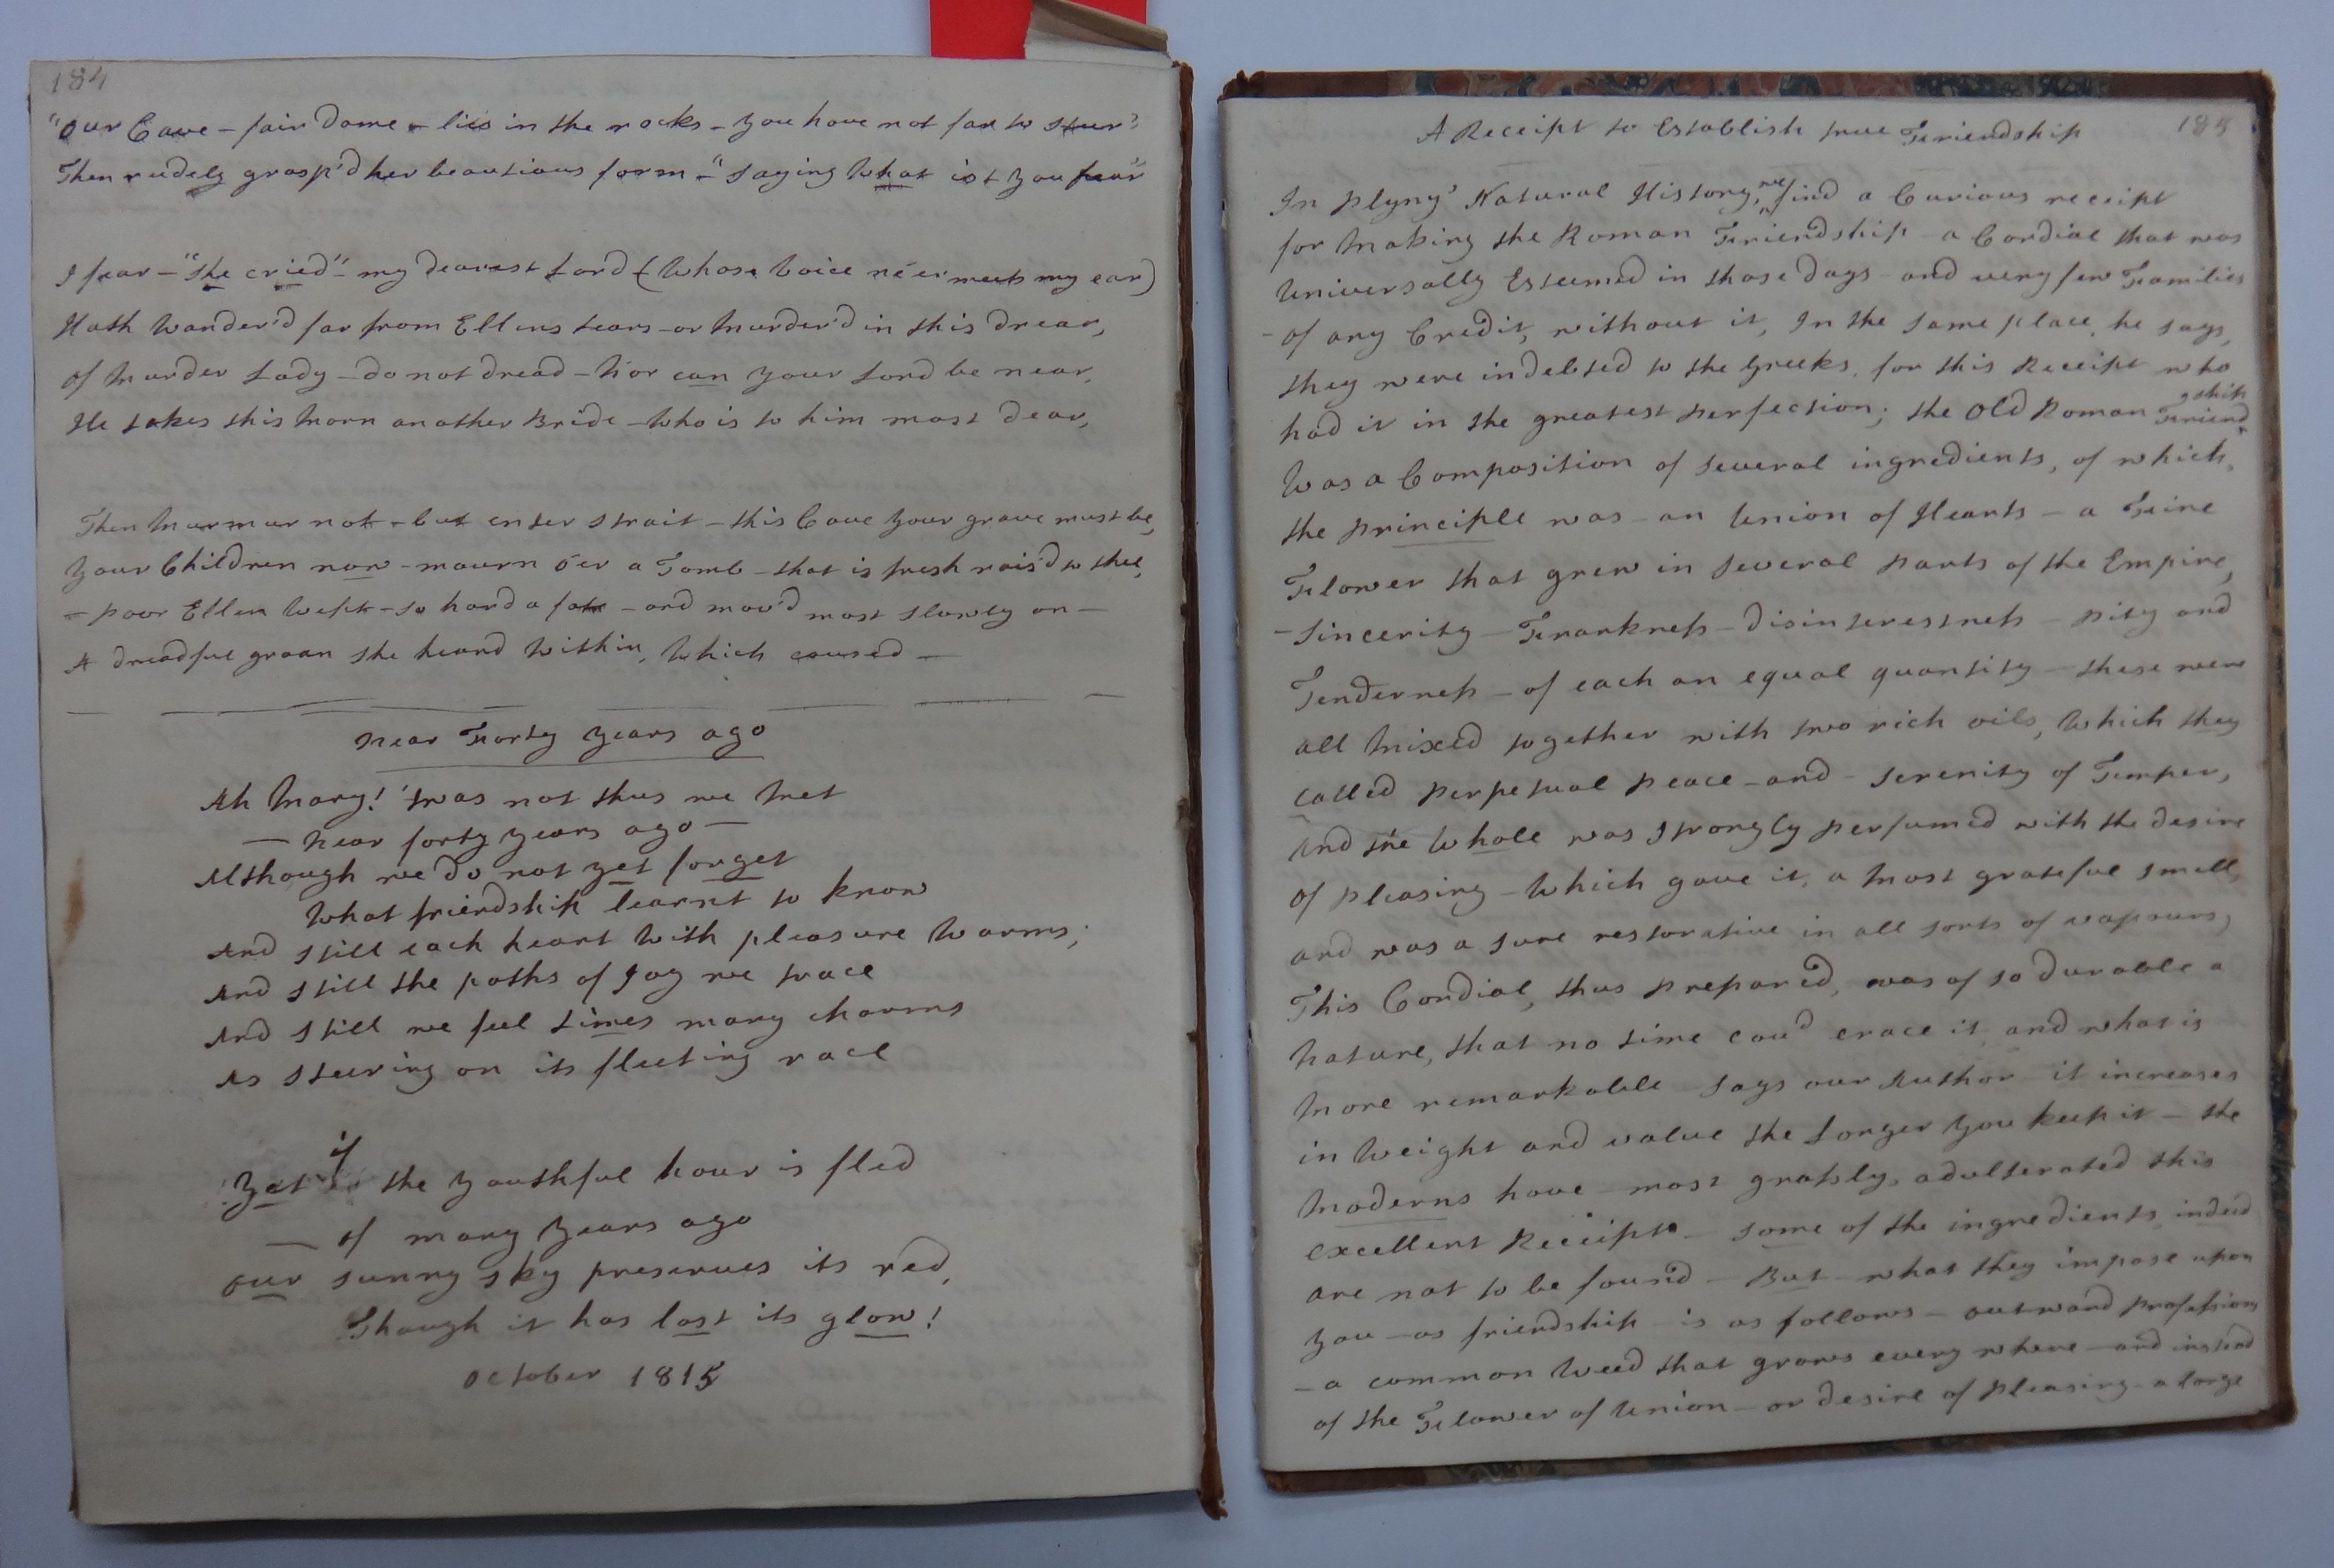 184
"Our Cave – fair Dame – lies in the rocks – you have not far to steer?
Then rudely grasp'd her beautious form –" saying what ist you fear"
I fear – "she cried" – my dearest Lord (whose voice ne'er meets my ear)
Hath wander'd far from Ellens tears – or murder'd in this drear,
Of murder Lady – do not dread – nor can your Lord be near,
He takes this morn another Bride – who is to him most dear,
Then murmur not – but enter strait – this Cave your grave must be,
Your Children now – mourn o'er a Tomb – that is fresh rais'd to thee,
– poor Ellen wept – so hard a fate – and mov'd most slowly on –
A dreadful groan she heard within, which caused –
Near Forty years ago
Ah Mary! 'twas not thus we met
– near forty years ago –
Although we do not yet forget
What friendship learnt to know
And still each heart with pleasure warms;
And still the paths of Joy we trace
And still we feel times many charms
As steering on its fleeting race
Yet if the youthful hour is fled
– of many years ago
our sunny sky preserves its red,
Though it has lost its glow!
October 1815
A Receipt to Establish true Friendship 185
In Plyny' Natural History, we find a Curious receipt
for making the Roman Friendship – a Cordial that was
Universally Esteemed in those days – and very few Families
– of any Credit, without it, In the same place, he says,
they were indebted to the Greeks, for this Receipt who
had it in the greatest perfection; the Old Roman Friendship
Was a Composition of several ingredients, of which,
the principle was – an Union of Hearts – a Fine
Flower that grew in several parts of the Empire,
– Sincerity – Frankness – Disinterestness – pity and
Tenderness – of each an equal quantity – these were
all mixed together with two rich oils, which they
called perpetual peace – and – serenity of Temper,
And the whole was strongly perfumed with the desire
of pleasing – which gave it, a most grateful smell,
and was a sure restorative in all sorts of vapours,
This Cordial, thus prepared, was of so durable a
nature, that no time cou'd erace it and what is
more remarkable – says our Author – it increases
in weight and value the longer you keep it – the
moderns have – most grossly, adulterated this
excellent Receipt – some of the ingredients indeed
are not to be found – But – what they impose upon
you – as friendship – is as follows – outward professions
– a common weed that grows every where – and instead
of the Flower of Union – or desire of pleasing – a large